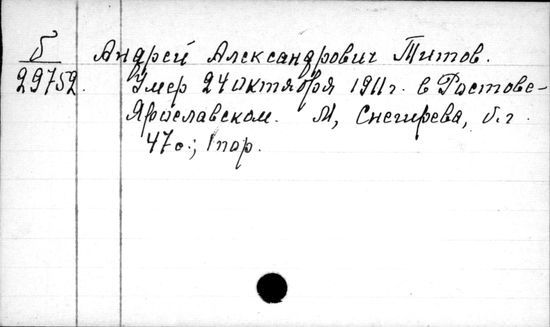 Б
29752.
Андрей Александрович Титов.
Умер 24 октября 1911 г. в Ростове-
Ярославском. М, Снегирева, б.г.
47с.; 1 пор.